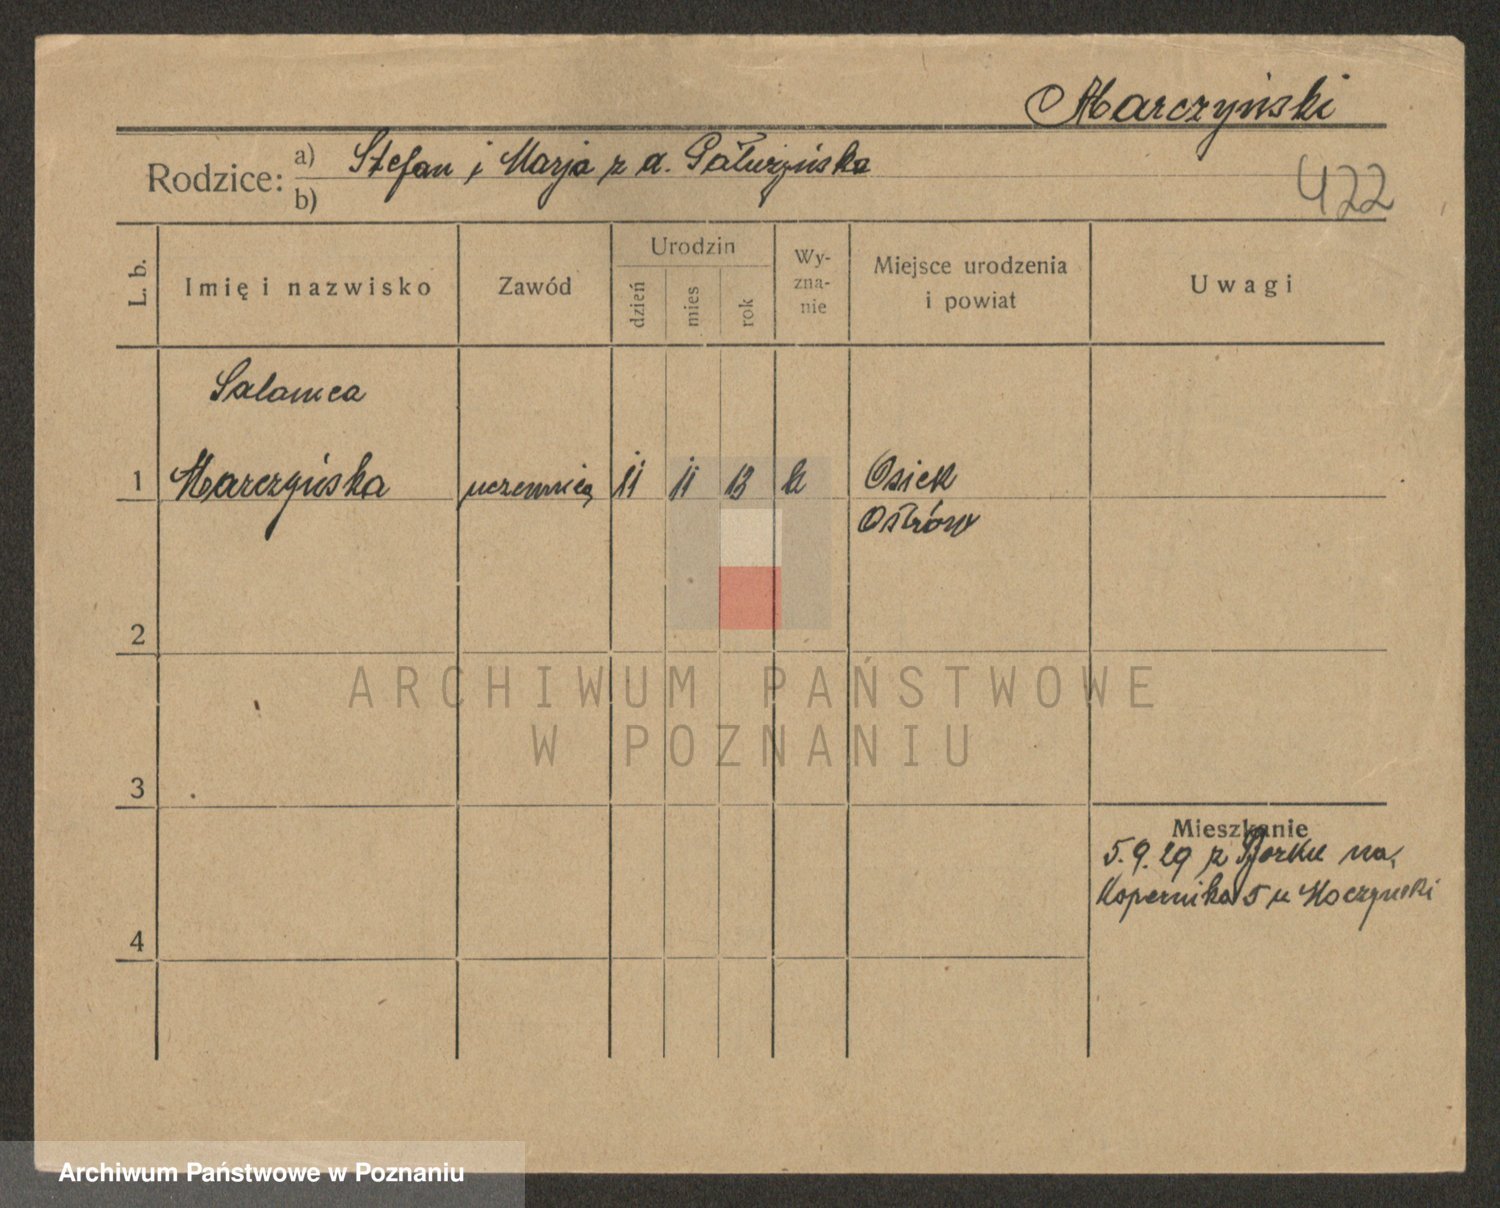 Marczyński
Rodzice: a) Stefan i Marja z d.
b)
422
L. b.
Imię i nazwisko
Zawód
Urodzin
dzień
mies
rok
Wy-
zna-
nie
Miejsce urodzenia
i powiat
Uwagi
Salomea
1 Marczyńska uczennica 11 11 13 k Osiek
Ostrów
2
ARCHIWUM PAŃSTWOWE
W POZNANIU
3
Mieszkanie
5.9.29 z Borku na
Kopernika 5 u
4
Archiwum Państwowe w Poznaniu